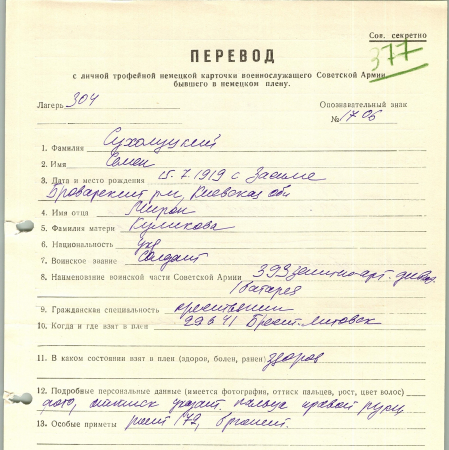 Сов. секретно
377
ПЕРЕВОД
с личной трофейной немецкой карточки военнослужащего Советской Армии,
бывшего в немецком плену.
Лагерь 304
Опознавательный знак
№ 1706
1. Фамилия Сухолуцкий
2. Имя Семен
3. Дата и место рождения 15.7.1919 с
Броварский р-н, Киевская обл
4. Имя отца Мирон
5. Фамилия матери Куликова
6. Национальность укр
7. Воинское звание Солдат
8. Наименование воинской части Советской Армии 393 зенитно-арт. дивиз.
1 батарея
9. Гражданская специальность крестьянин
10. Когда и где взят в плен 29 6 41 Брест-Литовск
11. В каком состоянии взят в плен (здоров, болен, ранен) здоров
12. Подробные персональные данные (имеется фотография, оттиск пальцев, рост, цвет волос)
фото, оттиск указат. пальца правой руки
13. Особые приметы рост 172,